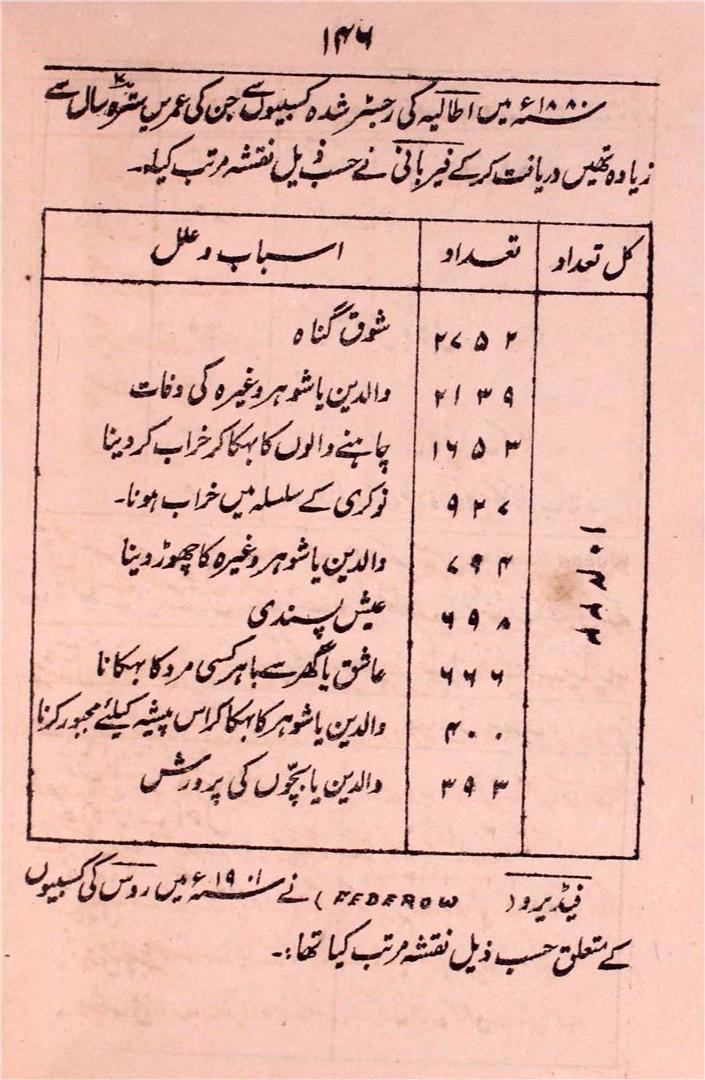 ۱۴۶
۱۸۸۰ء میں اطالیہ کی رجسٹر شدہ کسبیوں سے جن کی عمریں سترہ سال سے
زیادہ تھیں دریافت کر کے فیربانی نے حسب ذیل نقشہ مرتب کیا:۔
کل تعداد تعداد اسباب و علل
۲۷۵۲ شوق گناہ
۲۱۳۹ والدین یا شوہر وغیرہ کی وفات
۱۶۵۳ چاہنے والوں کا بہکا کر خراب کر دینا
۹۲۷ نوکری کے سلسلہ میں خراب ہونا۔
۷۹۴ والدین یا شوہر وغیرہ کا چھوڑ دینا
۶۹۸ عیش پسندی
۶۶۶ عاشق یا گھر سے باہر کسی مرد کا بہکانا
۴۰۰ والدین یا شوہر کا بہکا کر اس پیشہ کیلئے مجبور کرنا
۳۹۳ والدین یا بچّوں کی پرورش
فیڈیرو (FEDEROW) نے ۱۹۰۱ء میں روس کی کسبیوں
کے متعلق حسب ذیل نقشہ مرتب کیا تھا:۔